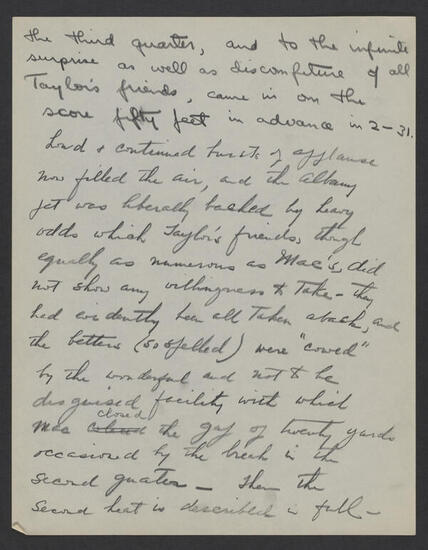 the third quarter, and to the infinite
surprise as well as discomfiture of all
Taylor's friends, came in on the
score fifty feet in advance in 2-31.
Loud & continued bursts of applause
now filled the air, and the Albany
pet was liberally backed by heavy
odds which Taylor's friends, though
equally as numerous as Mac's, did
not show any willingness to take - they
had evidently been all taken aback, and
the betters (so spelled) were "cowed"
by the wonderful and not to be
disguised facility with which
Mac closed the gap of twenty yards
occasioned by the break in the
second quarter - Then the
second heat is described in full -